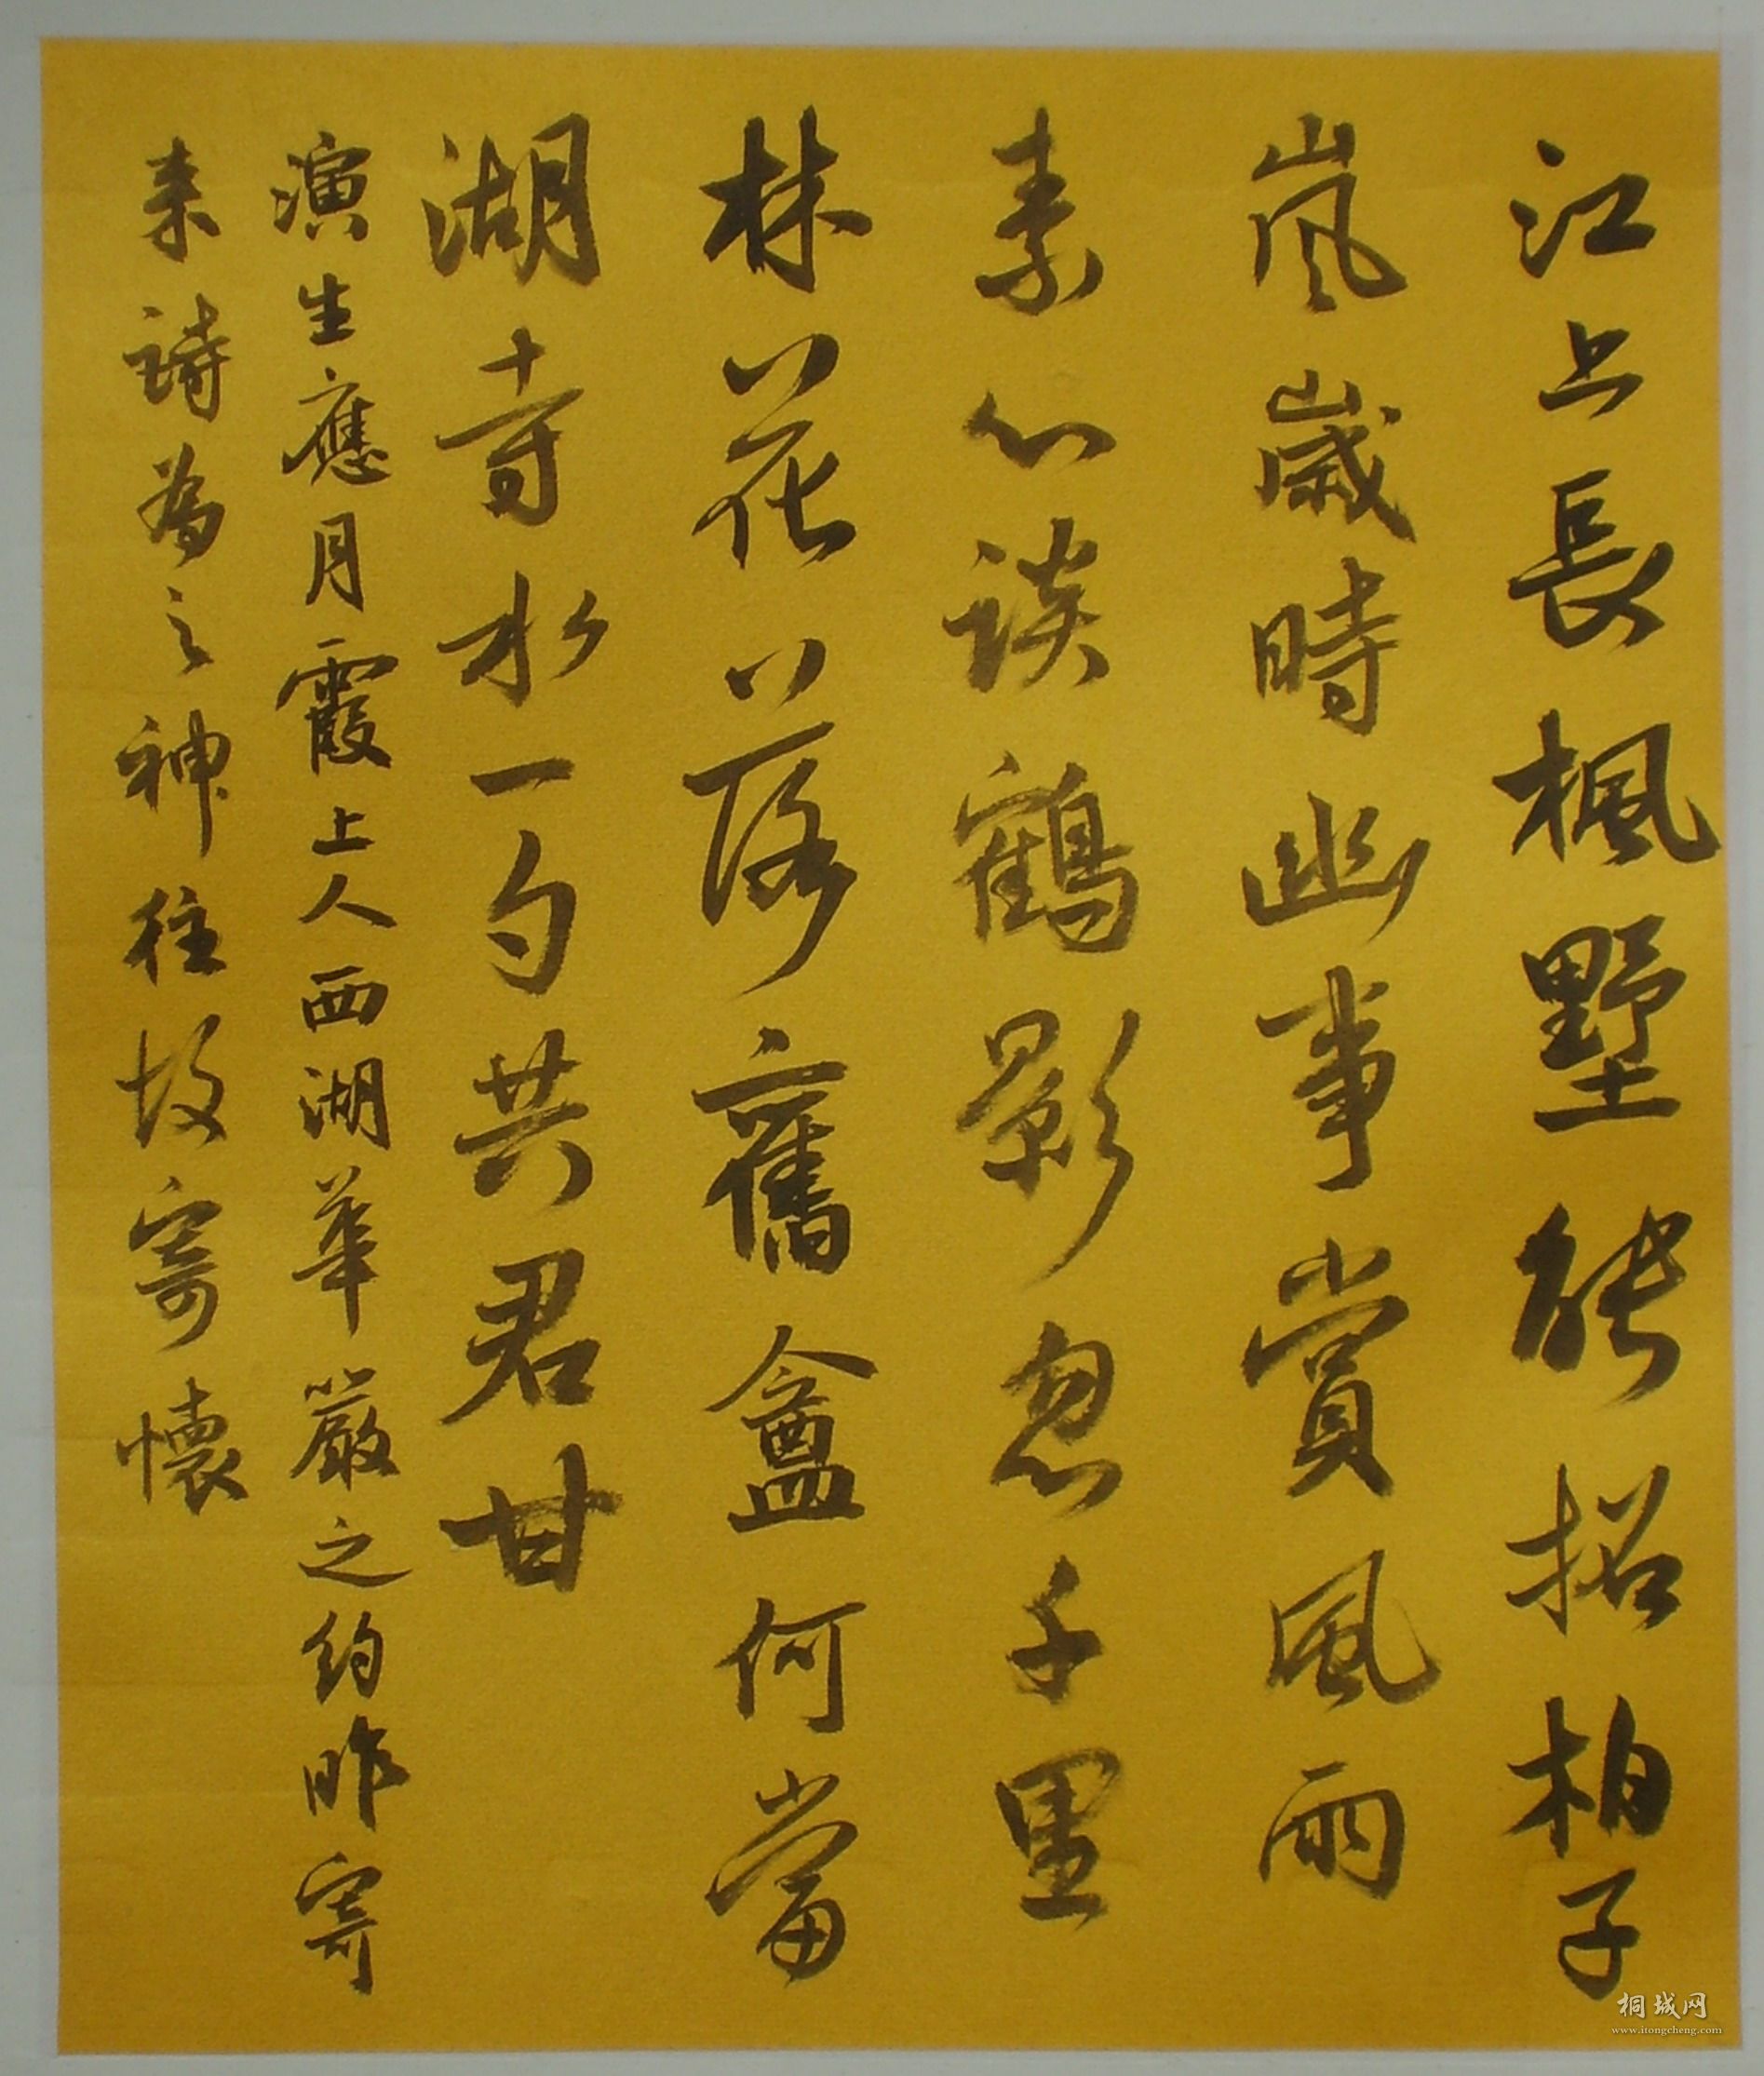 江上長楓墅能招柏子
嵐歲時幽事賞風雨
素心談鶴影忽千里
林花落舊龕何當
湖寺水一勺共君甘
演生應月霞上人西湖華嚴之約昨寄
來詩為之神往故寄懷
桐城网
www.itongcheng.com